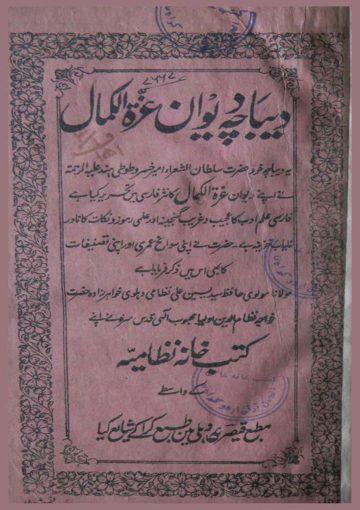 دیباچہ دیوان غرۃ الکمال
یہ دیباچہ خود حضرت سلطان الشعراء امیر خسرو طوطی ہند علیہ الرحمۃ
نے اپنے دیوان غرۃ الکمال کا نثر فارسی میں تحریر کیا ہے
فارسی علم ادب کا عجیب و غریب گنجینہ اور علمی رموز و نکات کا نادر
نایاب خزینہ ہے۔ حضرت نے اپنی سوانح عمری اور اپنی تصنیفات
کا بھی اس میں ذکر فرمایا ہے
مولانا مولوی حافظ سید یٰسین علی نظامی دہلوی خواہر زادہ حضرت
خواجہ نظام الدین اولیا محبوب الٰہی قدس سرہ نے اپنے
کتب خانہ نظامیہ
کے واسطے
مطبع قیصریہ دہلی میں طبع کرا کر شائع کیا